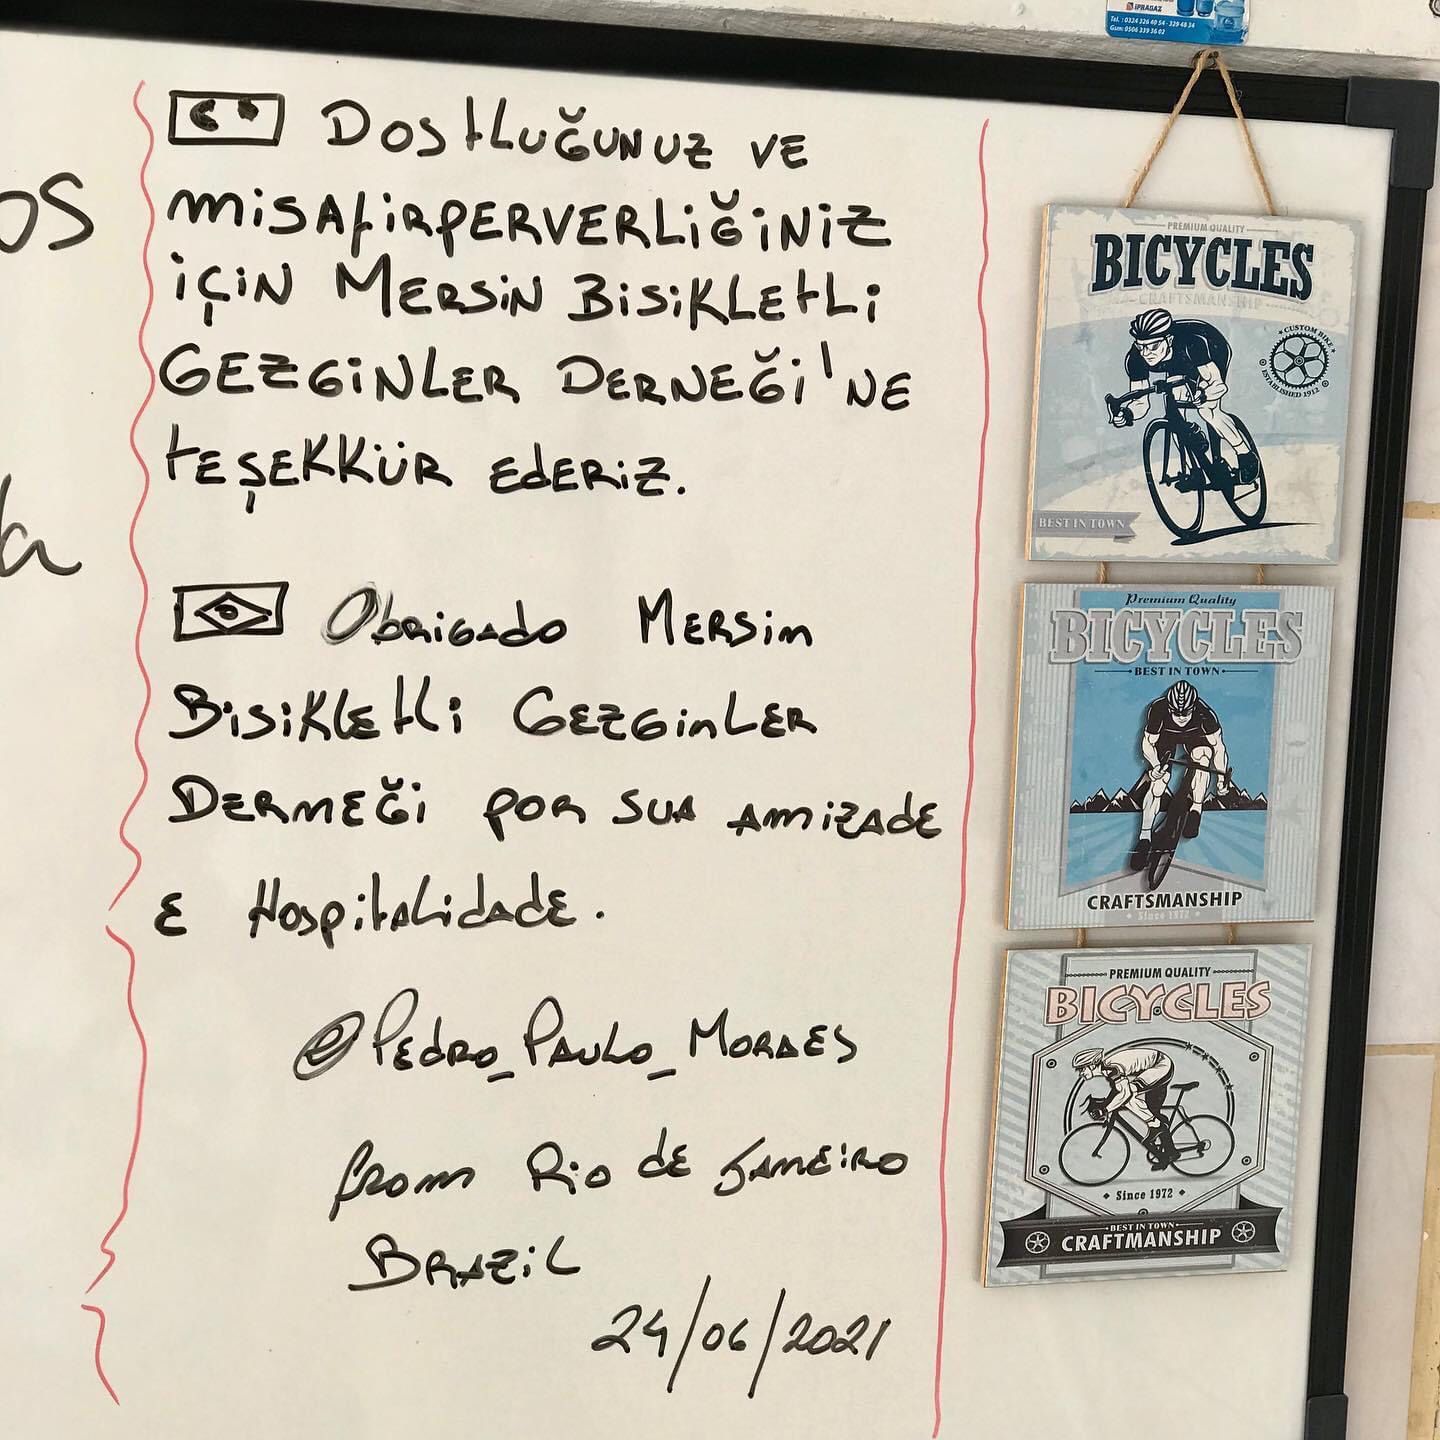 iPRAGAZ
Tel. : 0324 326 40 54 - 329 48 34
Gsm: 0506 339 36 02
os
a
DOSTLUĞUNUZ VE
MİSAFİRPERVERLİĞİNİZ
İÇİN MERSİN BİSİKLETLİ
GEZGİNLER DERNEĞİ'NE
TEŞEKKÜR EDERİZ.
Obrigado Mersin
Bisikletli Gezginler
Derneği por sua amizade
e Hospitalidade.
@Pedro_Paulo_Moraes
from Rio de Janeiro
Brazil
24/06/2021
PREMIUM QUALITY
BICYCLES
CRAFTSMANSHIP
CUSTOM BIKE
ESTABLISHED 1912
BEST IN TOWN
Premium Quality
BICYCLES
BEST IN TOWN
CRAFTSMANSHIP
Since 1972
PREMIUM QUALITY
BICYCLES
Since 1972
BEST IN TOWN
CRAFTMANSHIP